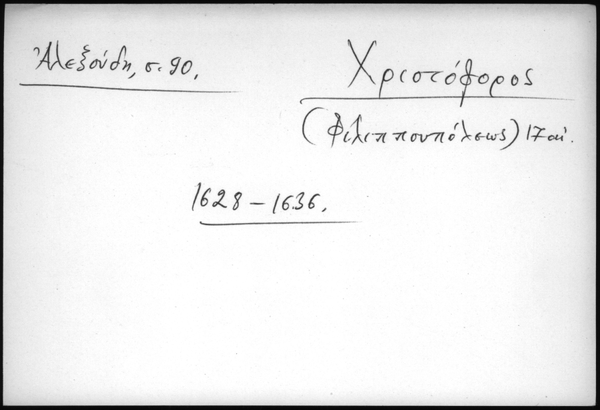 Ἀλεξούδη, σ. 90.
Χριστόφορος
(Φιλιππουπόλεως) 17 αἰ.
1628 – 1636.